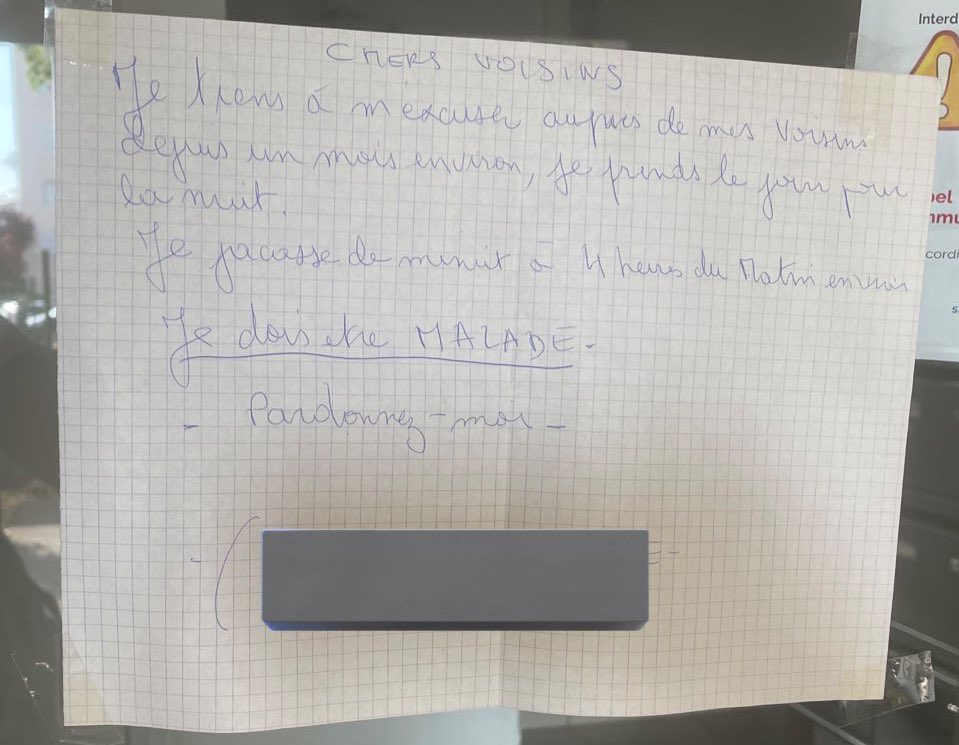 CHERS VOISINS
Je tiens à m'excuser auprès de mes Voisins
depuis un mois environ, je prends le jour pour
la nuit.
Je jacasse de minuit à 4 heures du Matin environ
Je dois etre MALADE.
- Pardonnez-moi -
Interd